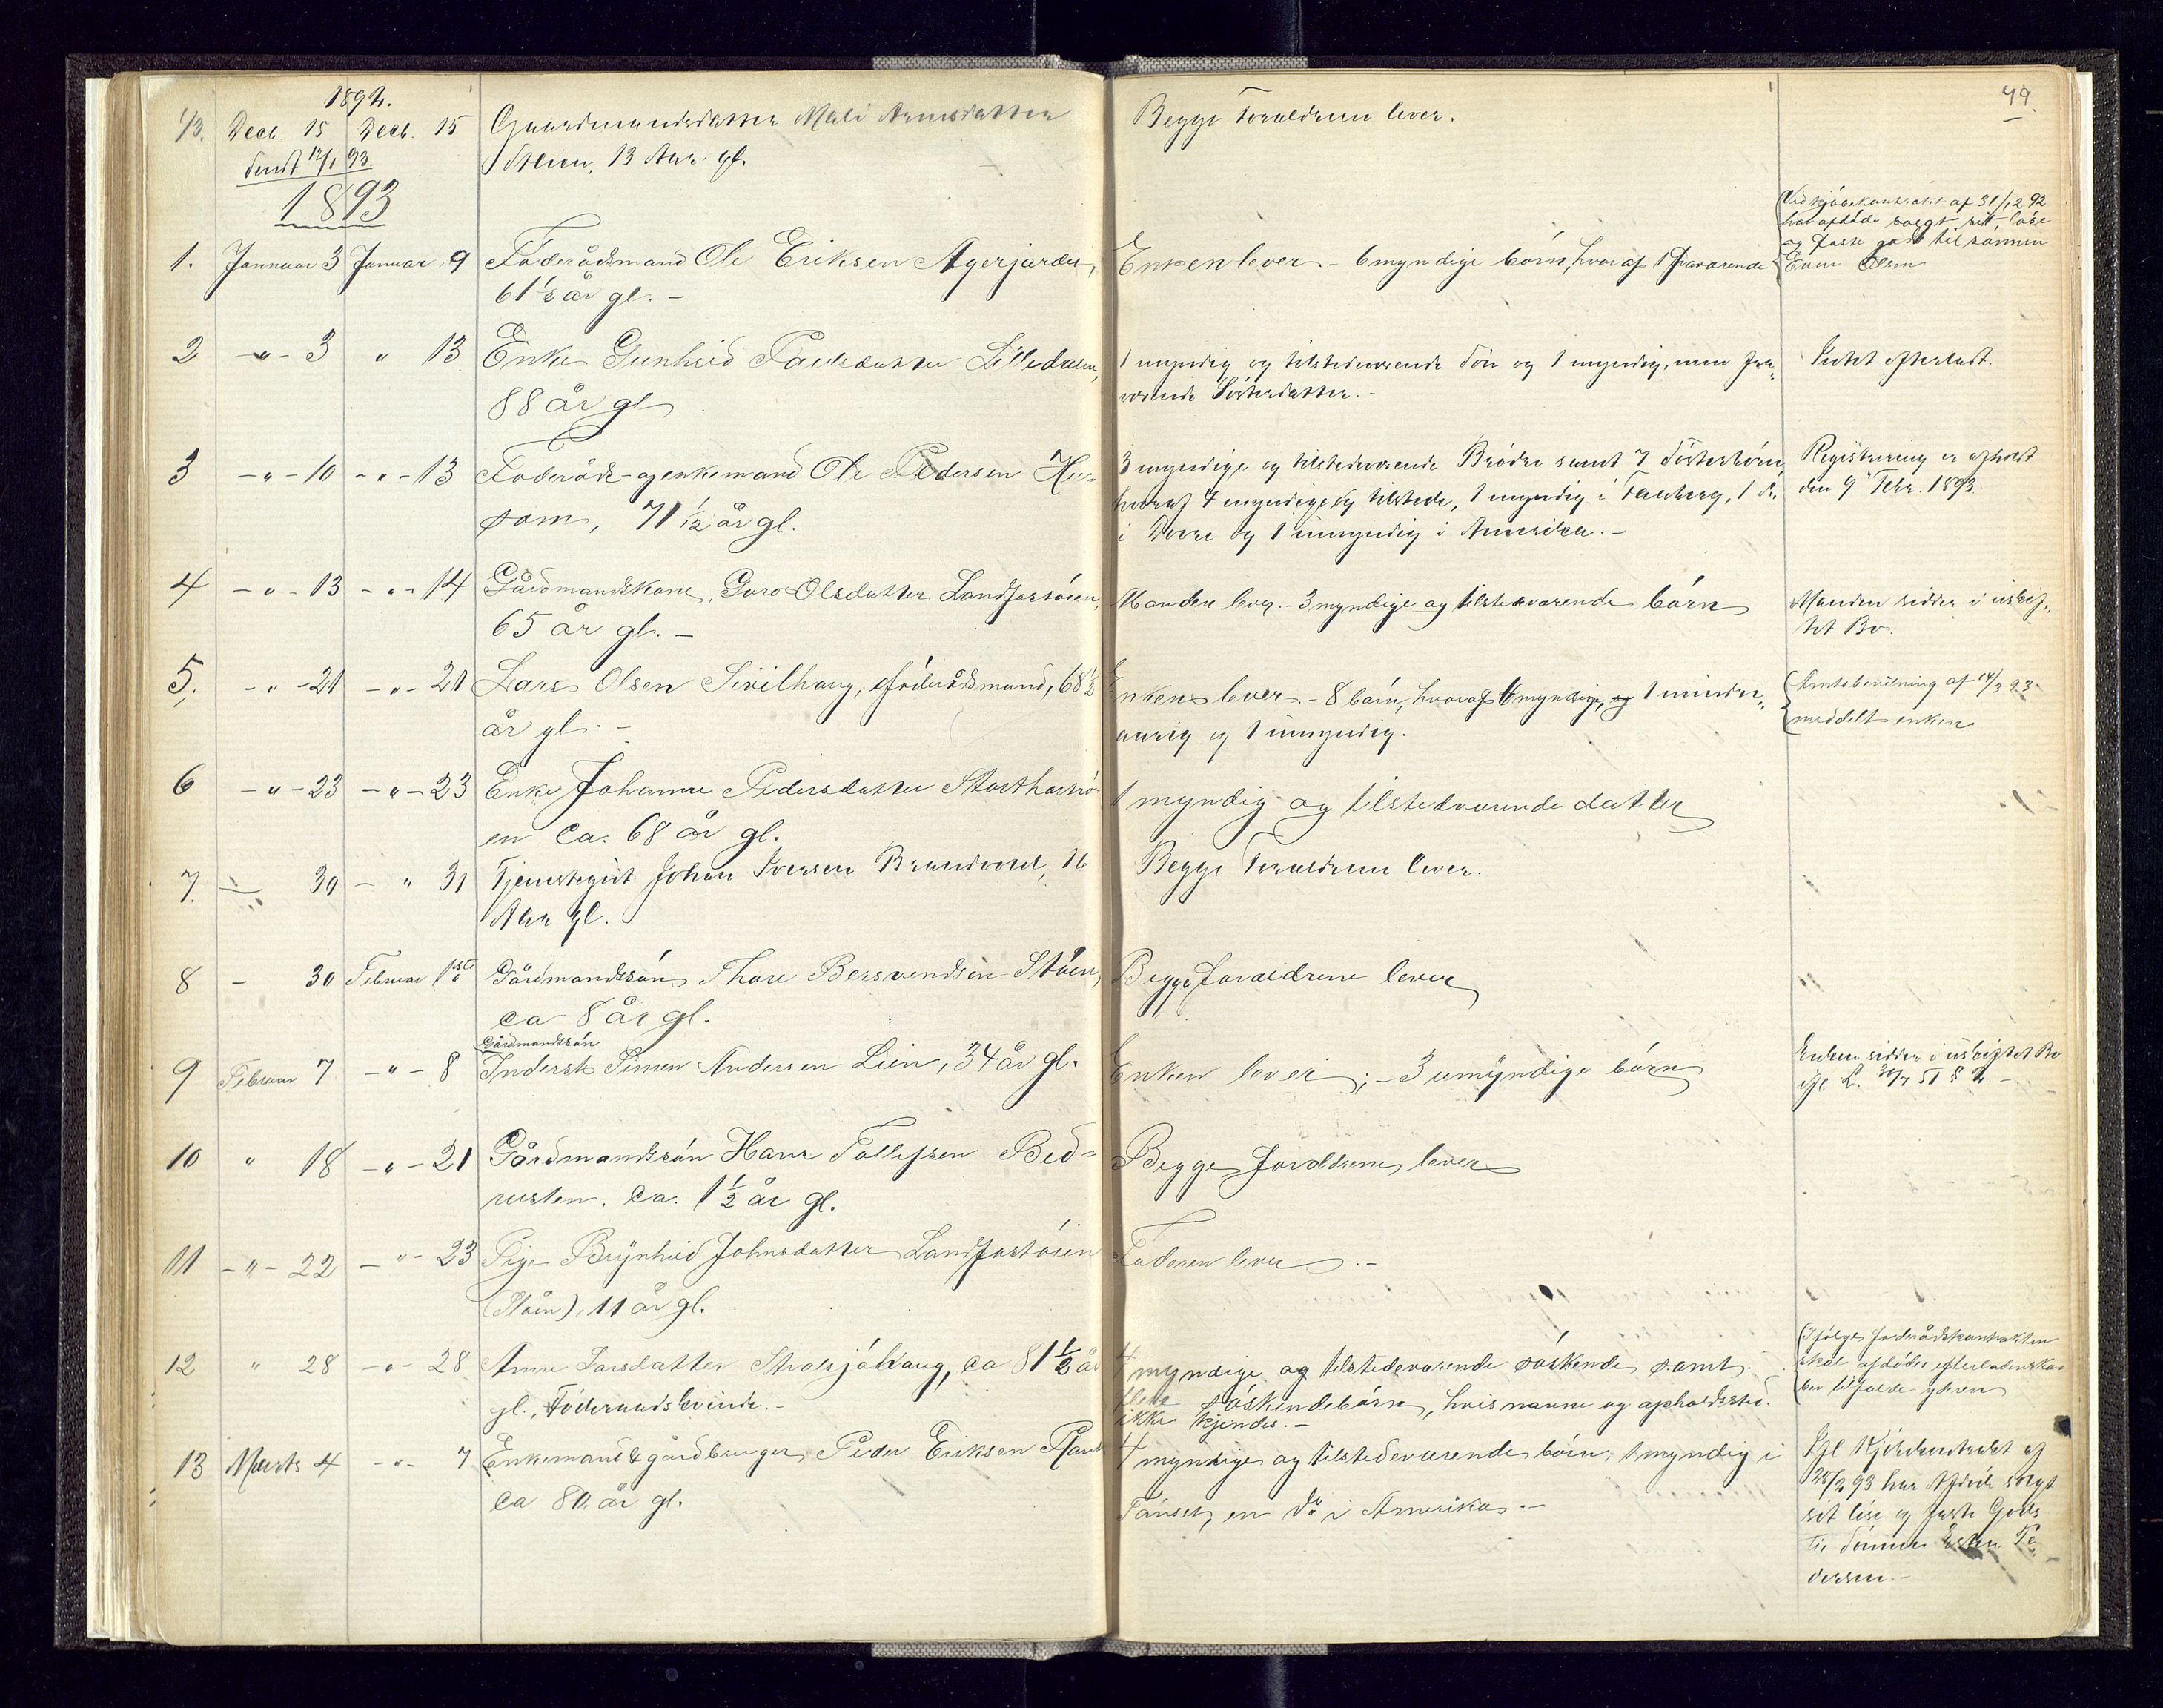 1892.
49.
1/3. Decb. 15 Decb. 15 Gaardmandsdatter Mali Arnesdatter
Begge Foraldrene lever.
Sendt 12/1 93.
Steien, 13 Aar gl.
1893
Ved kjöbekontrakt af 31/12 92
har afdöde solgt sit löse
og faste gods til sönnen
1. Januar 3 Januar 9 Föderådsmand Ole Eriksen Agerjordet,
61 1/2 år gl. -
Enken lever. - 6 myndige börn, hvoraf 1 fraværende
Olsen
2 -"- 3 " 13 Enke Gunhild Paulsdatter Lilledalen,
88 år gl
1 myndig og tilstedeværende Sön og 1 myndig, men fra-
værende Sösterdatter. -
Intet efterladt.
3 -"- 10 -"- 13 Föderåds- og enkemand Ole Pedersen Hu-
som, 71 1/2 år gl.
3 myndige og tilstedeværende Brödre samt 7 Sösterbörn,
hvoraf 4 myndige og tilstede, 1 myndig i Faaberg, 1 do.
i Dovre og 1 umyndig i Amerika. -
Registrering er afholdt
den 9 Febr. 1893
4 -"- 13 -"- 14 Gårdmandskone, Guro Olsdatter Landfastöien,
65 år gl. -
Manden lever. - 3 myndige og tilstedeværende börn
Manden sidder i uskif-
tet Bo.
5. -"- 21 -"- 21 Lars Olsen Sivilhaug, föderådsmand, 68 1/2
år gl. -
Enken lever. - 8 börn, hvoraf 6 myndige, og 1 minder-
aarig og 1 umyndig.
Amtsbevilning af 14/3 93
meddelt enken
6 -"- 23 -"- 23 Enke Johanne Pedersdatter
en ca. 68 år gl.
1 myndig og tilstedeværende datter
7. 30 - " 31 Tjenestegut Johan Iversen Brandvold, 16
Aar gl.
Begge Foraldrene lever.
8 - 30 Februar 1ste Gårdmandssön Thore Bersvendsen Stöen,
ca 8 år gl.
Begge foraldrene lever
Gårdmandssön
9 Februar 7 -"- 8 Inderst Simen Andersen Lien, 34 år gl.
Enken lever; - 3 umyndige börn
Enken sidder i uskiftet Bo
ifl. L. 30/7 51 § 2. -
10 " 18 -"- 21 Gårdmandssön Hans Tollefsen Bed-
rusten. ca. 1 1/2 år gl.
Begge foraldrene lever
11 -"- 22 - "- 23 Pige Brynhild Johnsdatter Landfastöien
(Stöen), 11 år gl.
Faderen lever. -
12 " 28 -"- 28 Anne Larsdatter Stolsjöhaug, ca 81 1/2 år
gl., Föderaadskvinde. -
4 myndige og tilstedeværende söskende samt
flere söskendebörn, hvis navne og opholdssted
ikke kjendes. -
Ifölge föderådskontrakten
skal afdödes efterladenska-
ber tilfalde yderen
13 Marts 4 -"- 7 Enkemand & gårdbruger Peder Eriksen
ca 80 år gl.
4 myndige og tilstedeværende börn, 1 myndig i
Tönset, en do i Amerika. -
Ifl Kjöbekontrakt af
25/2 93 har Afdöde solgt
sit löse og faste Gods
til Sönnen Esten Pe-
dersen. -